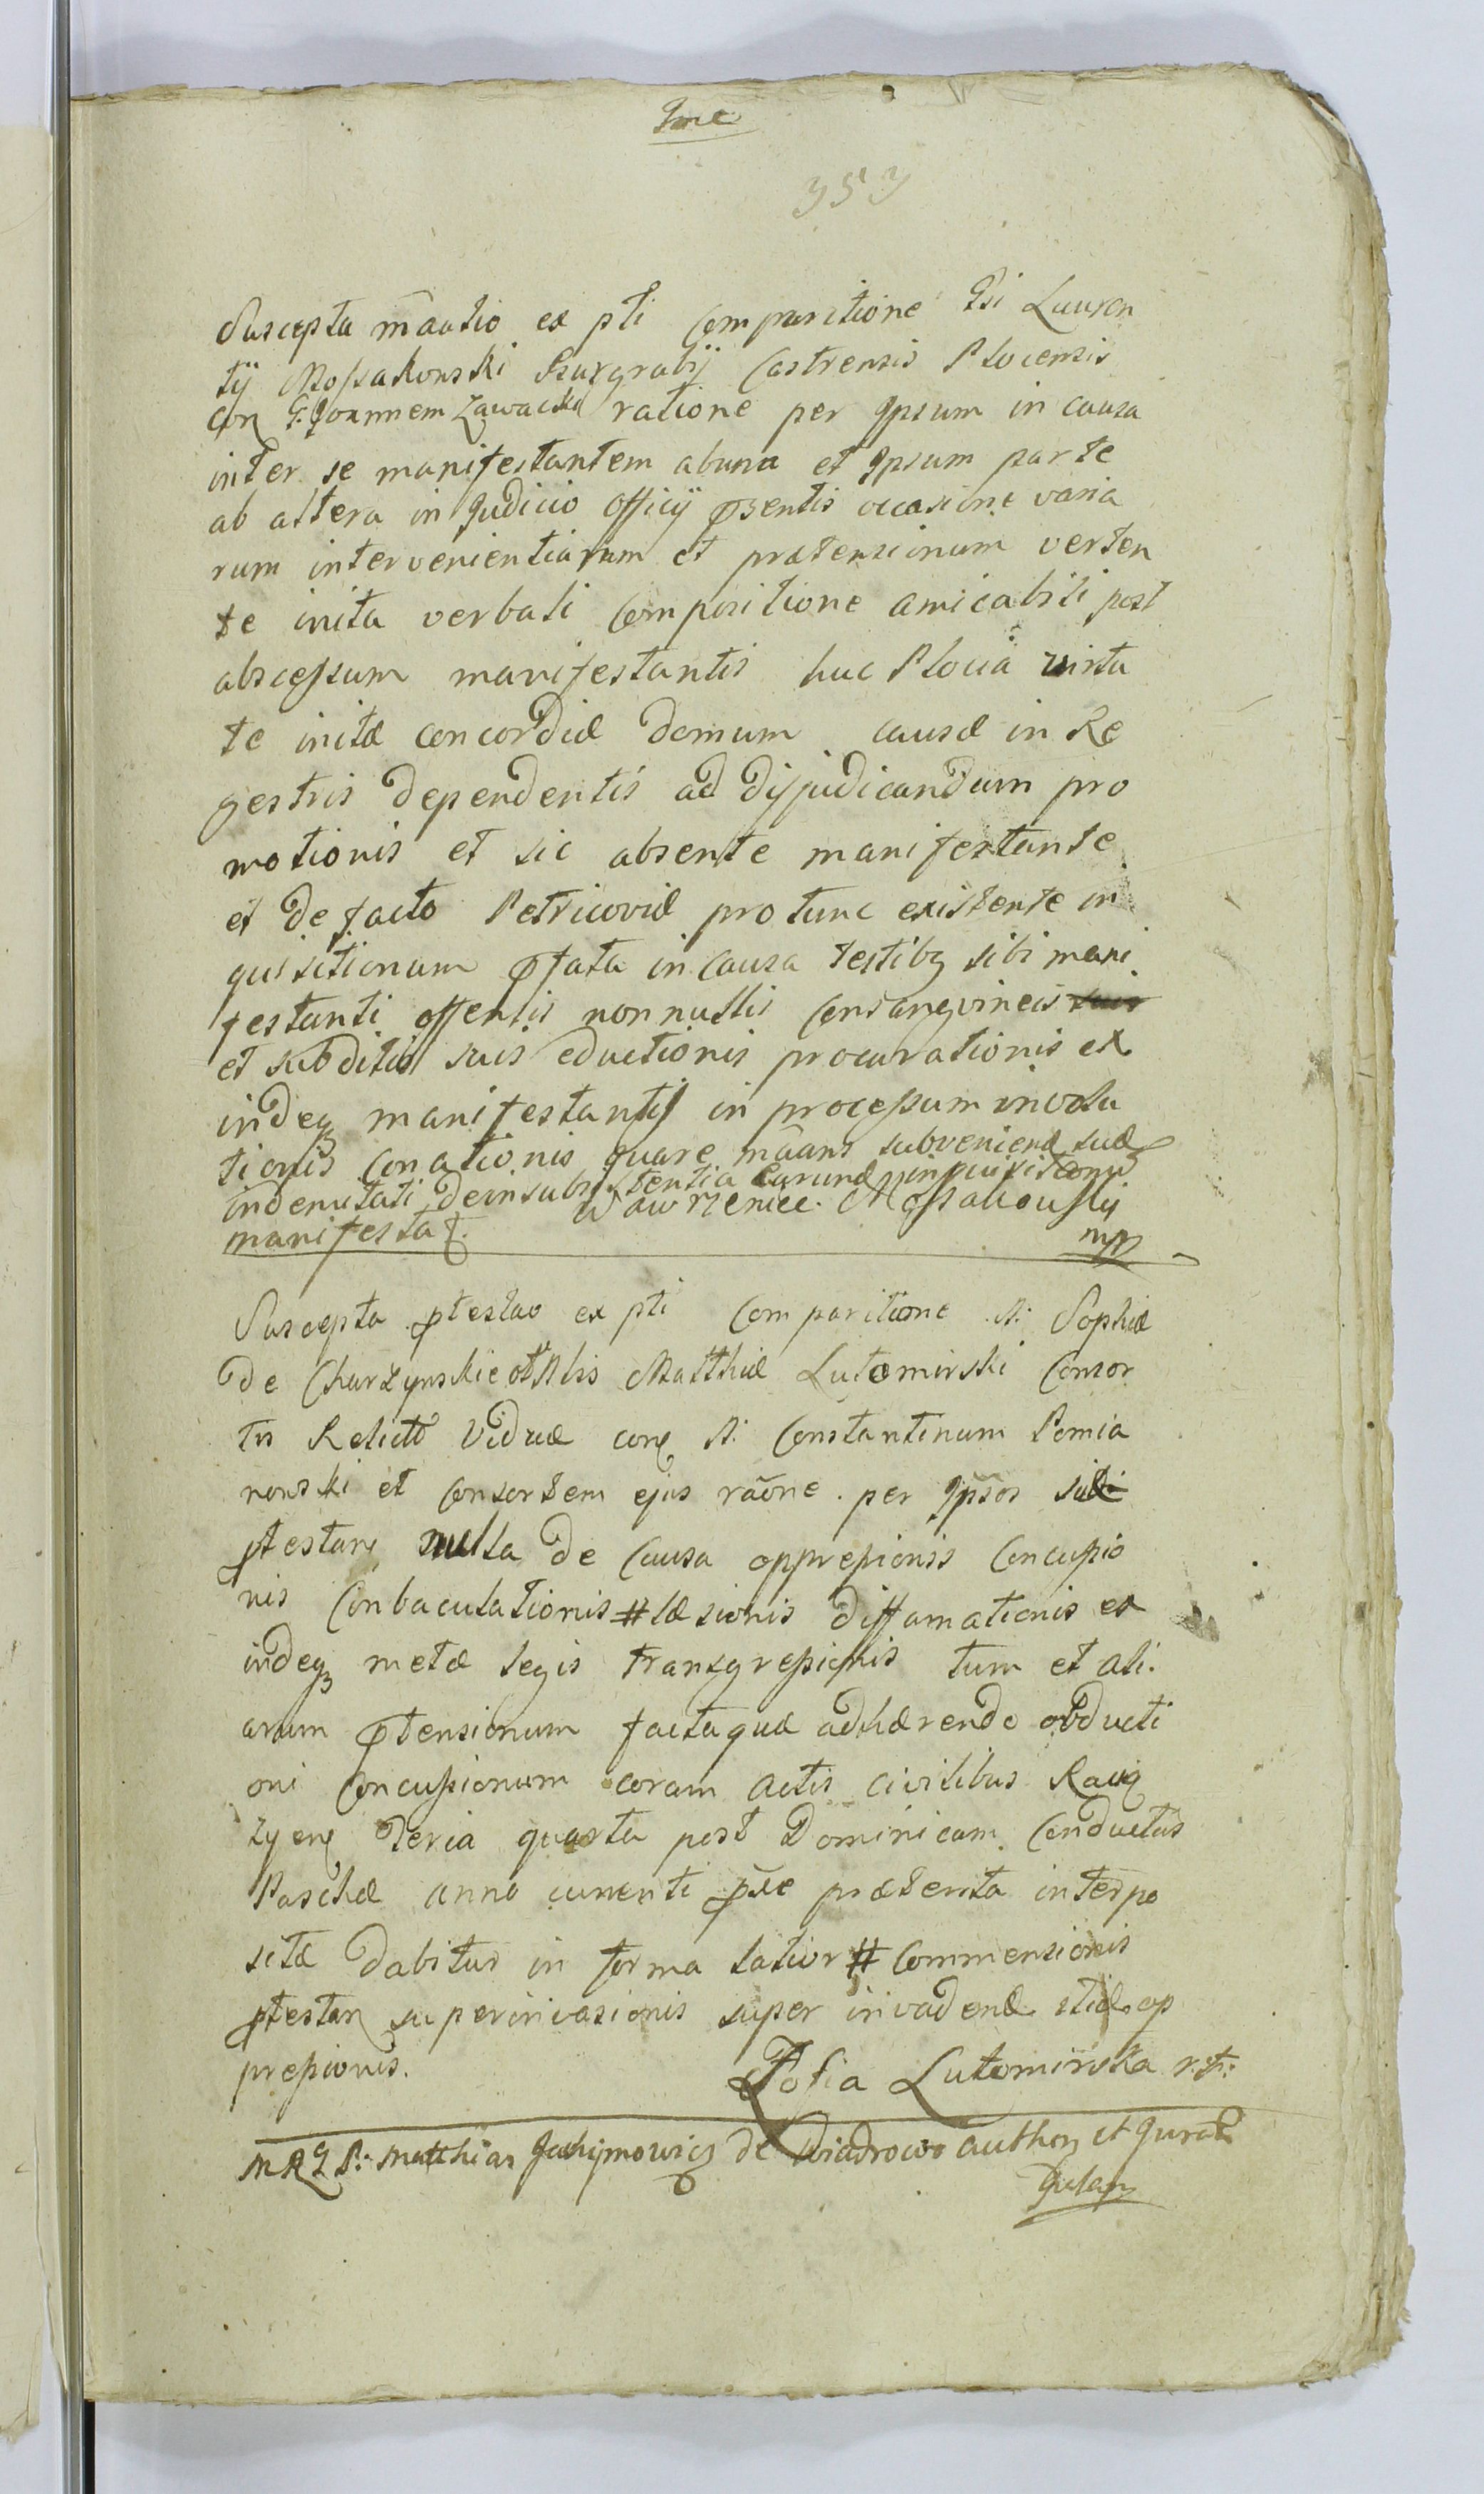 353
Suscepta mãatio ex pti Comparitione Gsi Lauren
tij Mossakowski Burgrabij Castrensis Plocensis
Con G. Joannem Zawacki ratione per Ipsum in causa
inter se manifestantem abuna et Ipsum parte
ab altera in Judicio Officij psentis occasione varia
rum intervenientiarum et prætensionum verten
te inita verbali Compositione amicabili post
abscessum manifestantis huc Plocia virtu
te initæ concordiæ domum causæ in Re
gestris dependentis ad dijudicandum pro
motionis et sic absente manifestante
et de facto Petricoviæ protunc existente in
quisitionum pfata in causa testibq sibi mani
festanti offensis nonnullis Consangvineis suis
et subditis suis eductionis procurationis ex
indeq manifestantis in processum involu
tionis Conationis quare mãans subveniend suæ
indemnitati de insubsistentia earund inquisitionu
manifestat. Wawrzeniec Mossakowskij
mp
Suscepta ptestao ex pti Comparitione N: Sophiæ
de Charzynskie olt Nbis Matthiæ Lutomirski Consor
tis Relictæ Viduæ con N: Constantinum Pomia
nowski et Consortem ejus raone per Ipsos sibi
ptestan nulla de Causa oppressionis Concussio
nis Conbaculationis # læsionis diffamationis ex
indeq metæ legis transgressionis tum et ali
arum ptensionum factaquæ adhærendo obducti
oni Concussionum coram actis civilibus Raciq
zyen feria quarta post Dominicam Conductus
Paschæ anno currenti præsenta interpo
sitæ dabitur in forma latior # Commensionis
ptestan superinvasionis super invadend op
pressionis.
Zofia Lutomirska
Matthias Jachimowicz de Wiadrowo author et Jurat